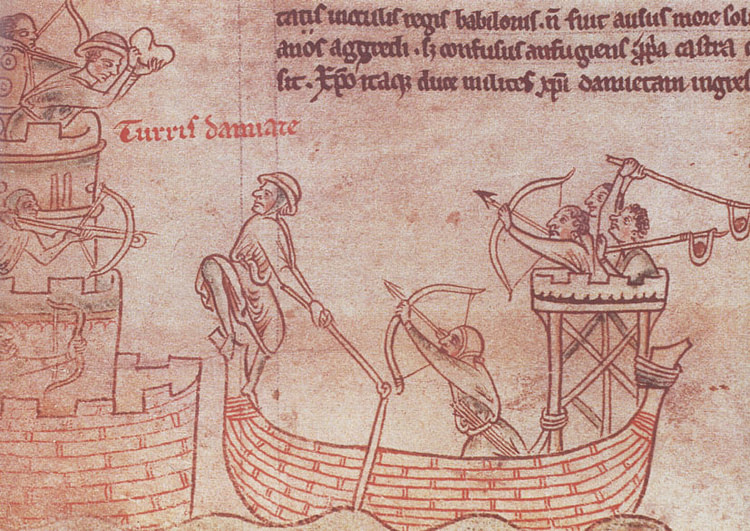 tatis incultis regis babilonis. ñ fuit ausus more sol
anos aggredi. sʒ confusus aufugiens castra
sit. Xp̄o itaqʒ duce milites xp̄i damietam ingres
Turris damiate